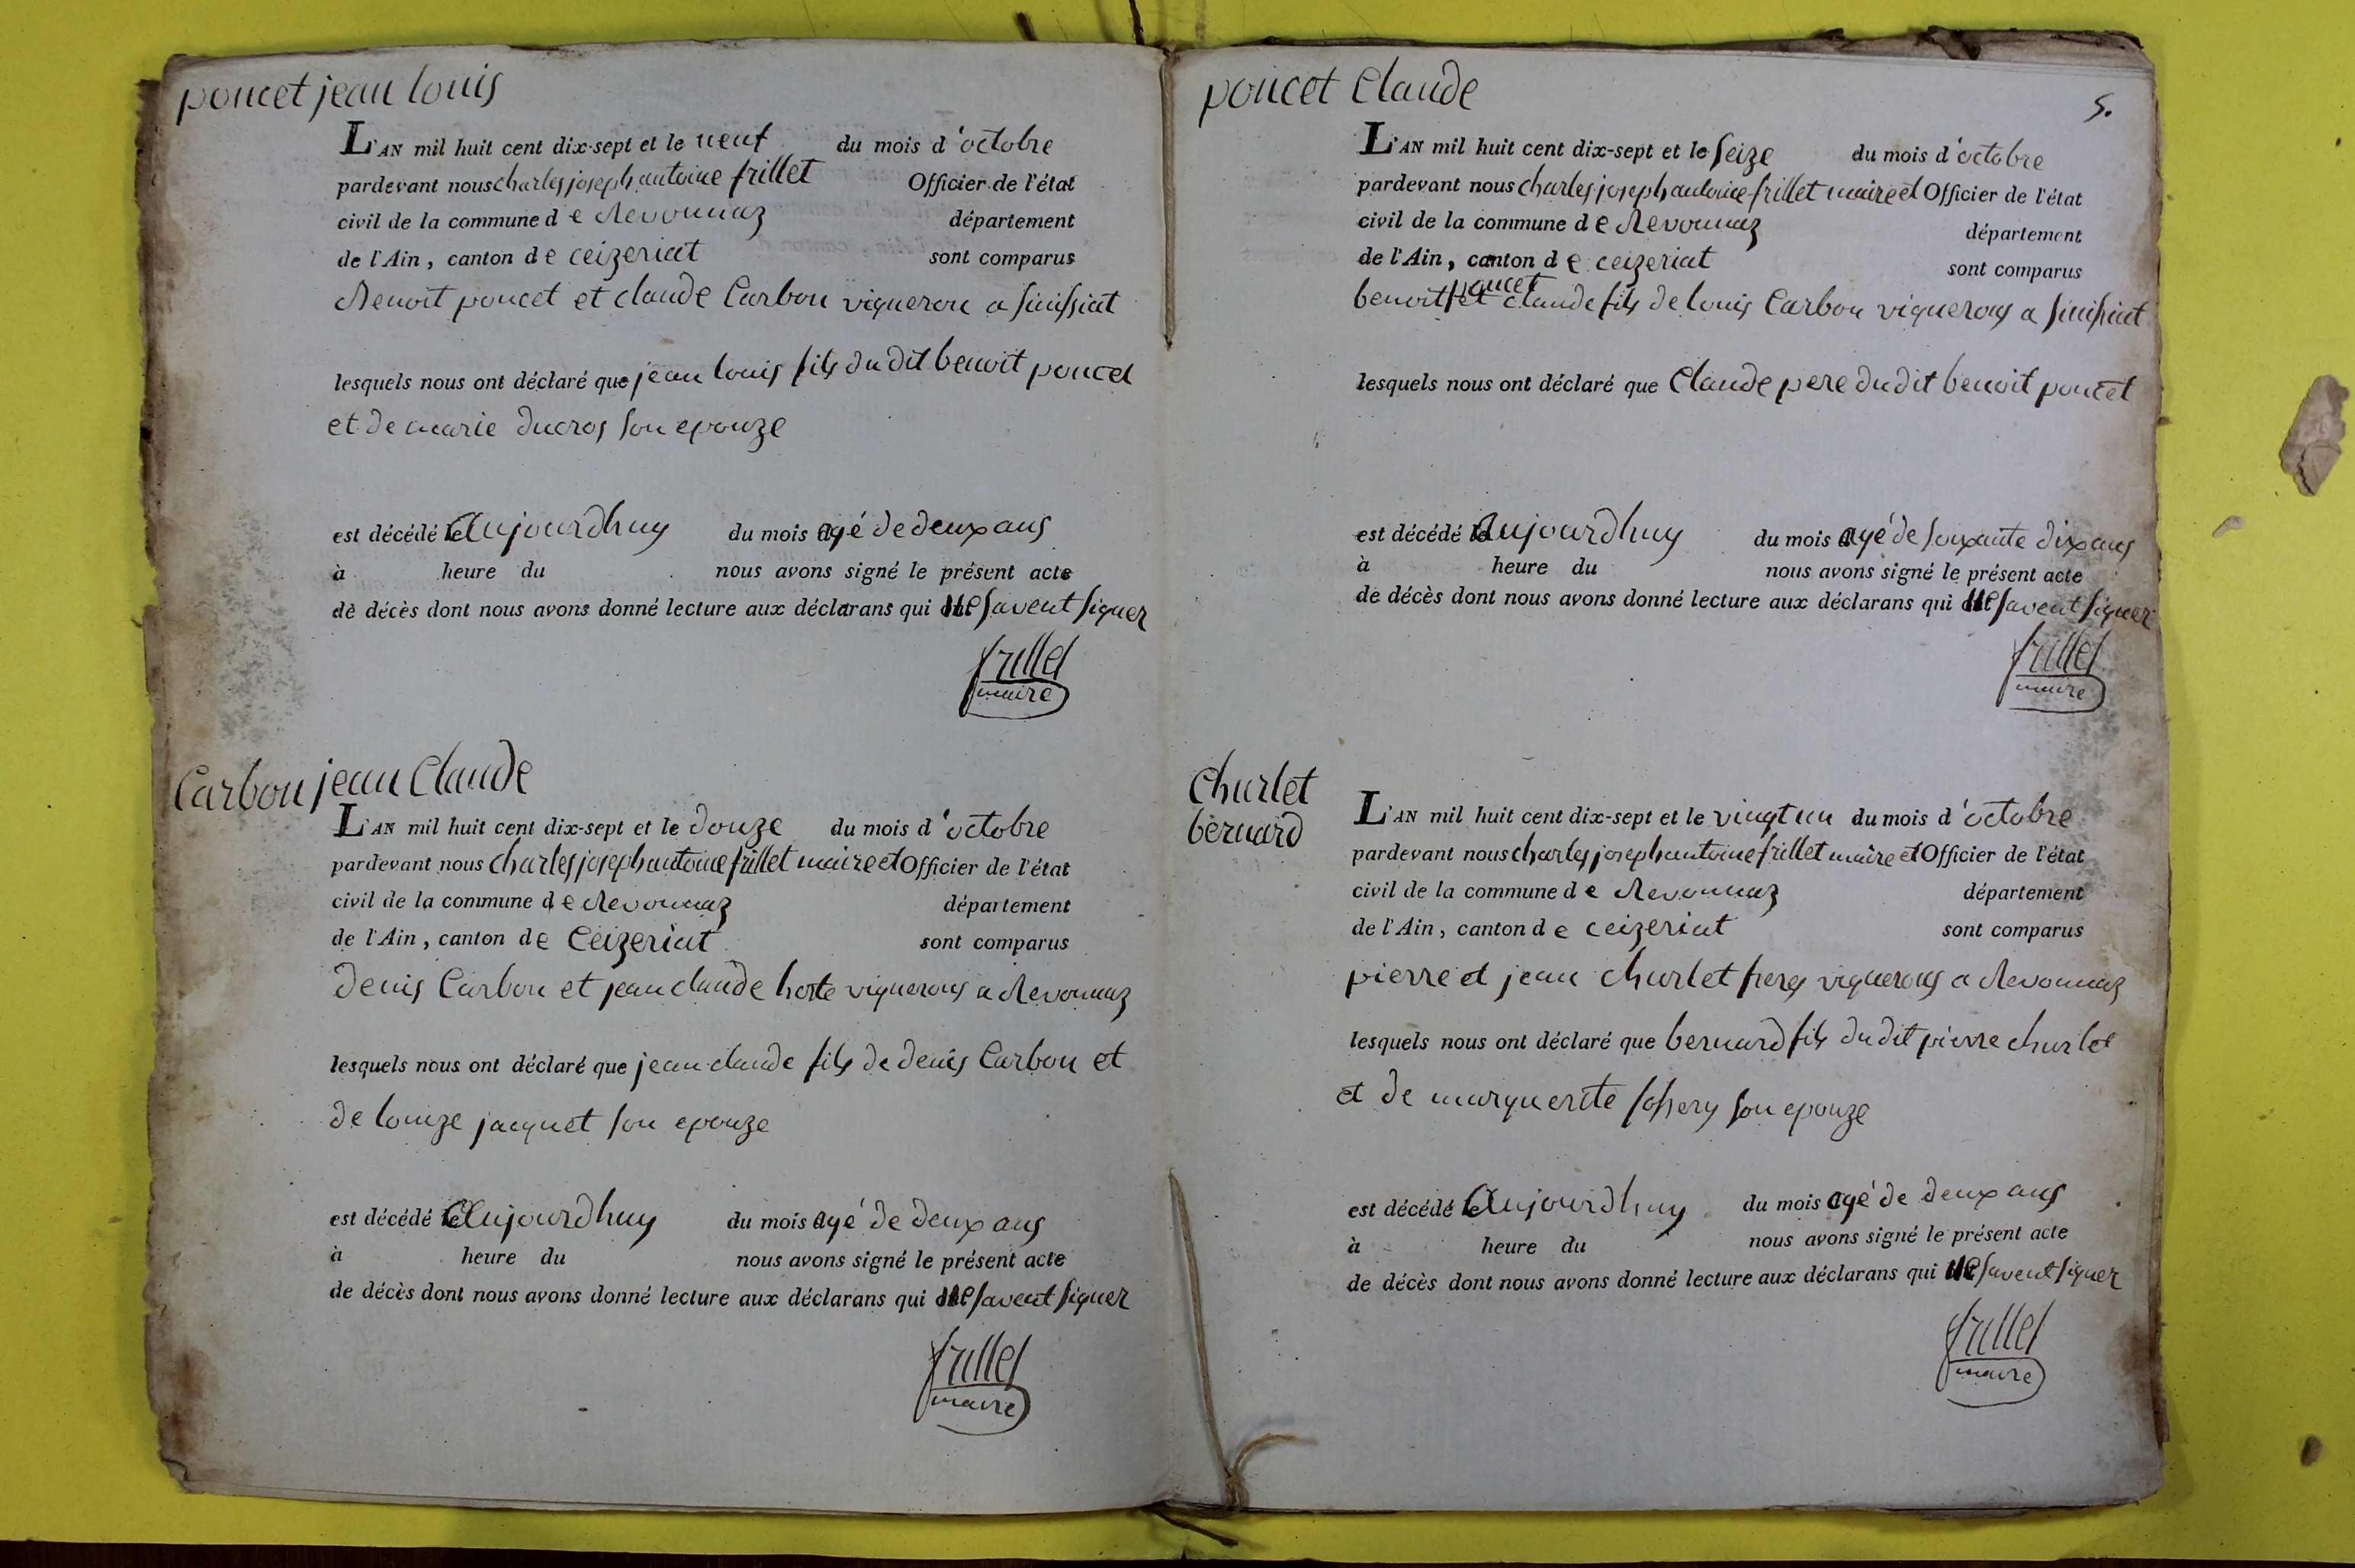 poncet jean louis
L'AN mil huit cent dix-sept et le neuf du mois d'octobre
pardevant nous charles joseph antoine frillet Officier de l'état
civil de la commune de Revonnaz département
de l'Ain, canton de ceizeriat sont comparus
Benoit poncet et claude Carbon vigneron a Sinissiat
lesquels nous ont déclaré que jean louis fils du dit benoit poncet
et de marie ducros son epouze
est décédé le aujourdhuy du mois agé de deux ans
à heure du nous avons signé le présent acte
de décès dont nous avons donné lecture aux déclarans qui ne savent signer
frillet
maire
Carbon jean Claude
L'AN mil huit cent dix-sept et le douze du mois d'octobre
pardevant nous charles joseph antoine frillet maire et Officier de l'état
civil de la commune de Revonnaz département
de l'Ain, canton de Ceizeriat sont comparus
denis Carbon et jean claude horte vignerons a Revonnaz
lesquels nous ont déclaré que jean claude fils de denis Carbon et
de louize jacquet son epouze
est décédé le aujourdhuy du mois agé de deux ans
à heure du nous avons signé le présent acte
de décès dont nous avons donné lecture aux déclarans qui ne savent signer
frillet
maire
poncet Claude
5.
L'AN mil huit cent dix-sept et le seize du mois d'octobre
pardevant nous charles joseph antoine frillet maire et Officier de l'état
civil de la commune de Revonnaz département
de l'Ain, canton de ceizeriat sont comparus
benoit poncet et claude fils de louis Carbon vignerons a
lesquels nous ont déclaré que Claude pere du dit benoit poncet
est décédé le aujourdhuy du mois agé de soixante dix ans
à heure du nous avons signé le présent acte
de décès dont nous avons donné lecture aux déclarans qui ne savent signer
frillet
maire
Churlet
bernard
L'AN mil huit cent dix-sept et le vingt un du mois d'octobre
pardevant nous charles joseph antoine frillet maire et Officier de l'état
civil de la commune de Revonnaz département
de l'Ain, canton de ceizeriat sont comparus
pierre et jean churlet freres vignerons a Revonnaz
lesquels nous ont déclaré que bernard fils du dit pierre churlet
et de marguerite son epouze
est décédé le aujourdhuy du mois agé de deux ans
à heure du nous avons signé le présent acte
de décès dont nous avons donné lecture aux déclarans qui ne savent signer
frillet
maire